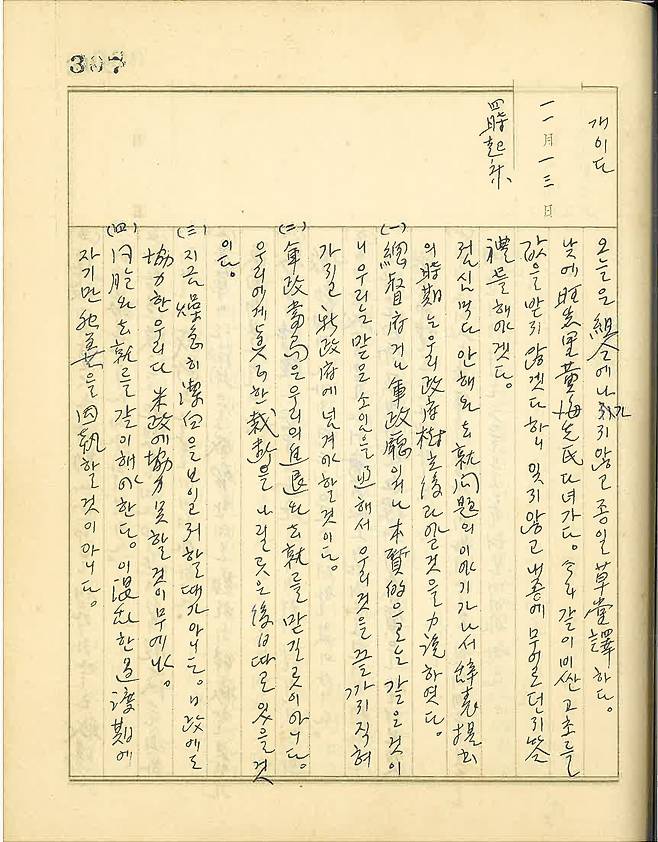 307
개이다
一一月一三日
四時起床
오늘은 組合에 나가지 않고 종일 草堂譯하다.
낮에 旺志里 黃海先氏 다녀가다. 금 같이 비싼 고초를
값을 받지 않겠다 하니 잊지 않고 내종에 무어로던지 答
禮를 해야겠다.
점심 먹다 안해와 去就問題의 이야기가 나서 辭表提出
의 時期는 우리 政府樹立後라야 할것을 力說하였다.
(一) 總督府거나 軍政廳이거나 本質的으로는 같은것이
니 우리는 맡은 소임을 通해서 우리것을 끝까지 직혀
가지고 新政府에 넘겨야 할것이다.
(二) 軍政當局은 우리의 進退와 去就를 맡길 곳이 아니다.
우리에게 眞正한 裁斷을 나릴 곳은 後日 따로 있을것
이다.
(三) 지금 燥急히 潔白을 보일려 할때가 아니다. 日政에도
協力한 우리다 米政에 協力 못할것이 무에냐.
(四) 同胞와 去就를 같이 해야 한다. 이 混亂한 過渡期에
자기만 死義를 固執할것이 아니다.